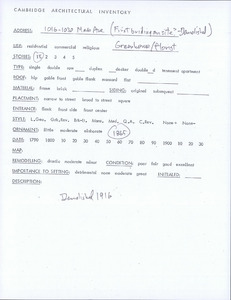 CAMBRIDGE ARCHITECTURAL INVENTORY
ADDRESS: 1016-1020 Mass Ave (First building on site - Demolished)
Greenhouse/Florist
USE: residential commercial religious
STORIES: 1½ 2 3 4 5
TYPE: single double row duplex decker double d tenement apartment
ROOF: hip gable front gable flank mansard flat
MATERIAL: frame brick SIDING: original subsequent
PLACEMENT: narrow to street broad to street square
ENTRANCE: flank front side front center
STYLE: L.Geo. Gk.Rev. Ital. Mans. Med. Q.A. C.Rev. None
ORNAMENT: little moderate elaborate 1865
DATE: 1790 1800 10 20 30 40 50 60 70 80 90 1900 10 20 30
MAP:
REMODELING: drastic moderate minor CONDITION: poor fair good excellent
IMPORTANCE TO SETTING: detrimental none moderate great INITIALED:
DESCRIPTION:
Demolished 1916